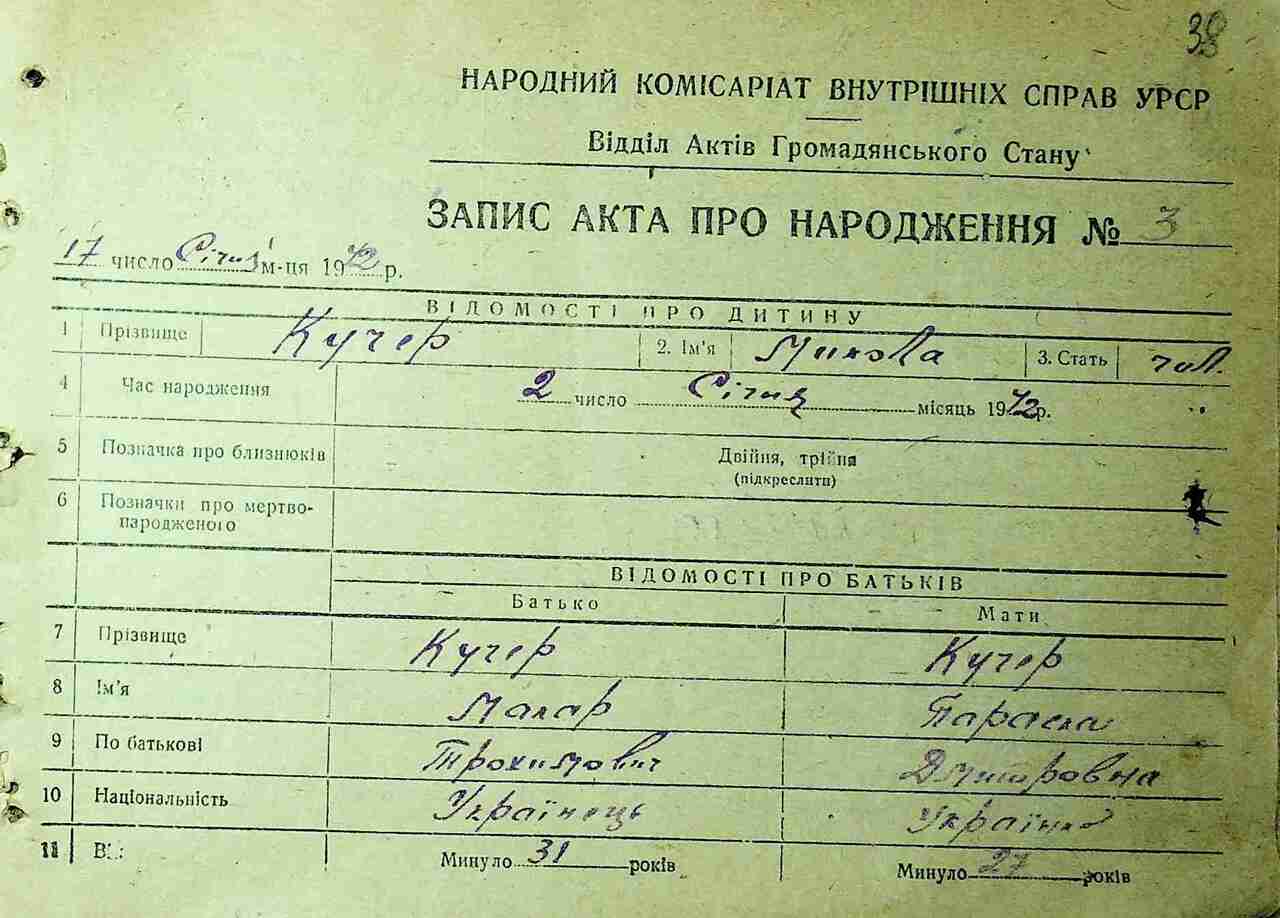 38
НАРОДНИЙ КОМІСАРІАТ ВНУТРІШНІХ СПРАВ УРСР
Відділ Актів Громадянського Стану
ЗАПИС АКТА ПРО НАРОДЖЕННЯ № 3
17 число Січня м-ця 1942 р.
ВІДОМОСТІ ПРО ДИТИНУ
1 Прізвище Кучер 2. Ім'я Микола 3. Стать чол.
4 Час народження 2 число Січня місяць 1942 р.
5 Позначка про близнюків Двійня, трійня
(підкреслити)
6 Позначки про мертво-
народженого
ВІДОМОСТІ ПРО БАТЬКІВ
Батько Мати
7 Прізвище Кучер Кучер
8 Ім'я Макар Параска
9 По батькові Трохимович Дмитровна
10 Національність Українець Українка
11 Ві: Минуло 31 років Минуло 27 років